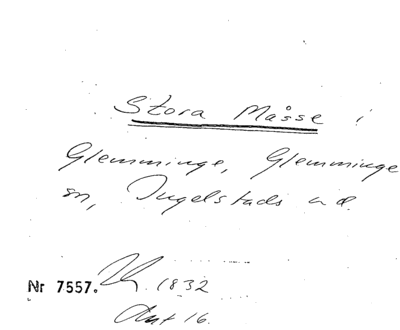 Stora Måsse i
Glemminge, Glemminge
sn, Ingelstads hd.
Nr 7557. 1832
Ant 16.